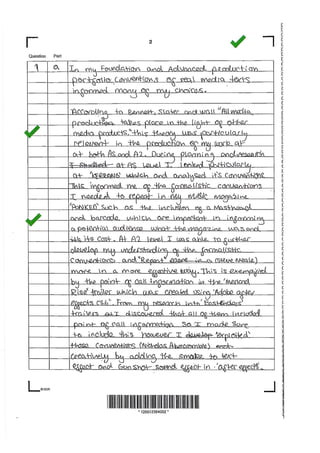 2
Question Part
1 a In my Foundation and Advanced production
portfolio conventions of real media texts
informed many of my choices.
According to Bennett, Slater and Wall "All media
production takes place in the light of other
media products." this theory was particularly
relevent in the production of my work at
at both AS and A2. During planning and research
at AS Level I looked particularly
at 'KERRANG' which and analysed it's conventions
This informed me of the formalistic conventions
I needed to repeat in my music magazine
'PUNKED' such as the inclusion of a Masthead
and barcode, which are important in informing
a potential audience what the magazine was and
its cost. At A2 level I was able to further
develop my understanding of the formalistic
conventions and "Repeat" (Steve Neale)
more in a more effective way. This is exemplified
by the point of call information in the
Rise' trailer which was created using 'Adobe after
effects CS6'. From my research into
trailers I discovered that all of them included
point of call information so I made sure
to include this however I
these conventions
creatively by adding the smoke to text
effect and Gun shot sound effect in 'after effects'.